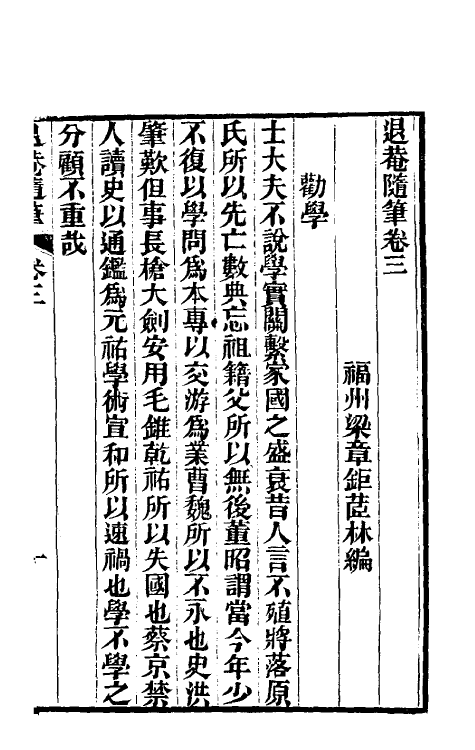 退菴隨筆卷三
福州梁章鉅茝林編
勸學
士大夫不說學實關繫家國之盛衰昔人言不殖將落原
氏所以先亡數典忘祖籍父所以無後董昭謂當今年少
不復以學問爲本專以交游爲業曹魏所以不永也史洪
肇歎但事長槍大劍安用毛錐乾祐所以失國也蔡京禁
人讀史以通鑑爲元祐學術宣和所以速禍也學不學之
分顧不重哉
退菴隨筆 卷三 一